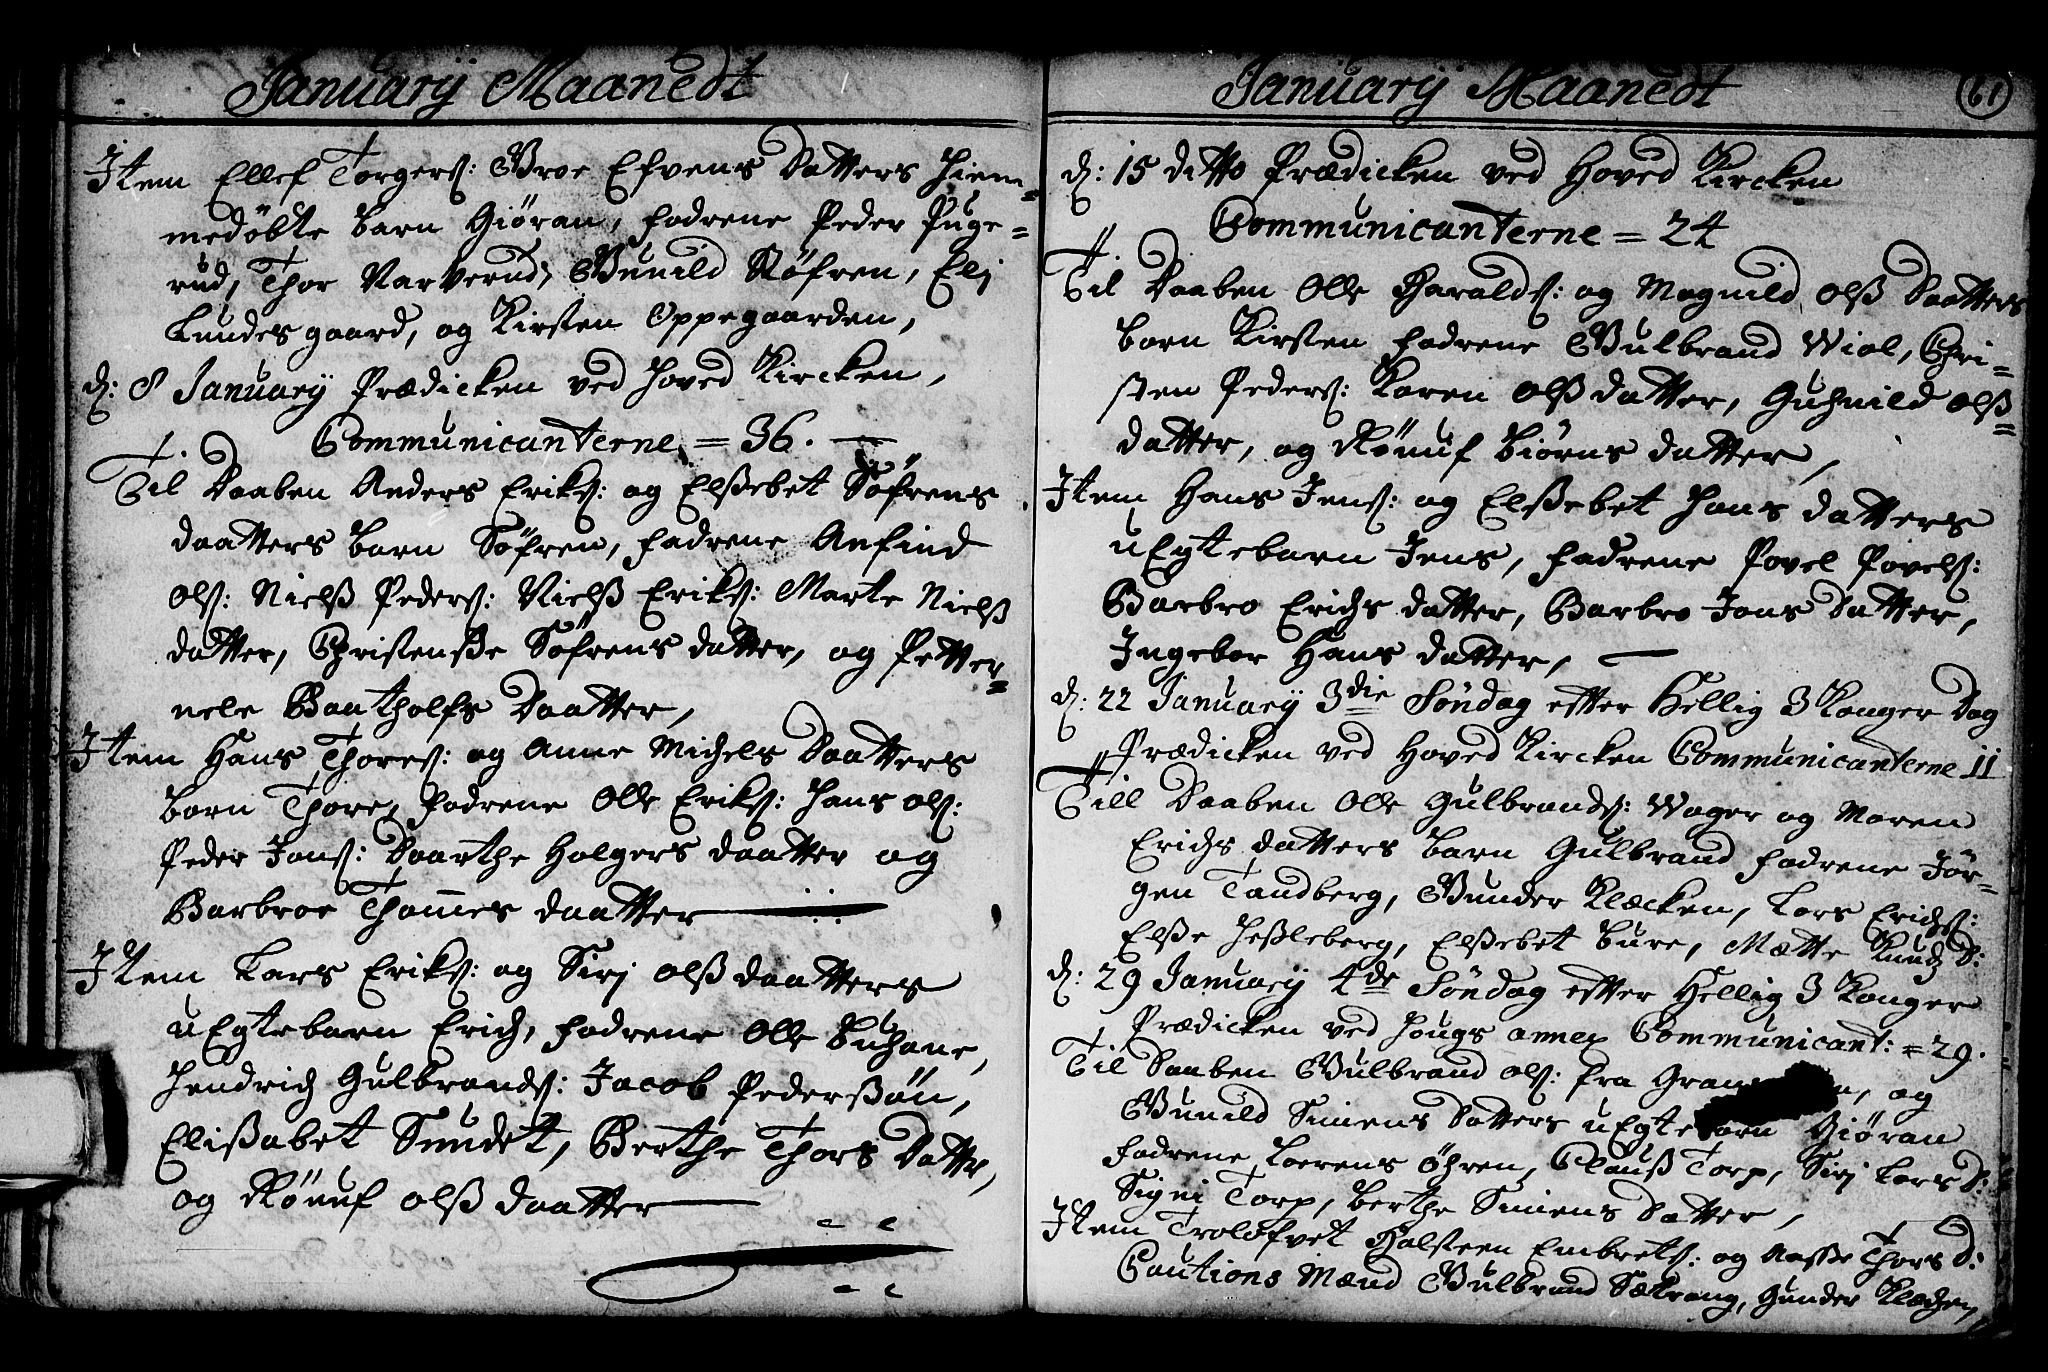 Januarij Maanedt
Item Ellef Torgers: Groe Efvens Datters Hiem=
medøbte barn Giøran, fadrene Peder Puge=
rud, Thor Varverud, Gunild Røfren, Elj
Lundes gaard, og Kirsten Oppegaarden,
d: 8 Januarij Prædicken ved Hoved Kircken,
Communicanterne = 36.
Til Daaben Anders Eriks: og Elßebet Søfrens
daatters barn Søfren, fadrene Anfind
Ols: Nielß Peders: Nielß Eriks: Marte Nielß
datter, Christenße Søfrens datter, og Petter=
nele Baatholfs Daatter,
Item Hans Thores: og Anne Michels Daatters
barn Thore, fadrene Olle Eriks: Hans Ols:
Peder Jons: Daarthe Holgers daatter og
Barbroe Thommes daatter
Item Lars Eriks: og Sirj Olß daatters
uEgte barn Erich, fadrene Olle Buhane,
Hendrich Gulbrands: Jacob Pederßøn,
Elißabet Sundet, Berthe Thors Datter,
og Rønuf Olß daatter
Januarij Maanedt
61
d: 15 ditto Prædicken ved Hoved Kircken
Communicanterne = 24
Til Daaben Olle Haralds: og Magnild Olß Daatters
barn Kirsten fadrene Gulbrand Wiol, Chri=
sten Peders: Karen Olß datter, Guhnild Olß=
datter, og Rønuf Biørns datter,
Item Hans Jens: og Elßebet Hans datters
uEgtebarn Jens, fadrene Povel Povels:
Barbro Erichs datter, Barbro Jons Datter,
Ingebor Hans datter,
d: 22 Januarij 3die Søndag efter Hellig 3 Konger Dag
Prædicken ved Hoved Kircken Communicanterne 11
Till Daaben Olle Gulbrands: Wager og Maren
Erichs datters barn Gulbrand fadrene Jør=
gen Tandberg, Gunder Klæcken, Lars Erichs:
Elße Heßleberg, Elßebet Bure, Mætte Knudz D:
d: 29 Januarij 4de Søndag efter Hellig 3 Konger
Prædicken ved Hougs annex Communicant: = 29.
Til Daaben Gulbrand Ols: fra og
Gunild Simens Datters uEgtebarn Giøran
fadrene Laerens Øhren, Clauß Torp, Sirj Lars D:
Signi Torp, Berthe Simens Datter,
Item Trolofvet Halsteen Embrets: og Aaße Thors D:
Cautions Mænd Gulbrand Sætrang, Gunder Klæchen,